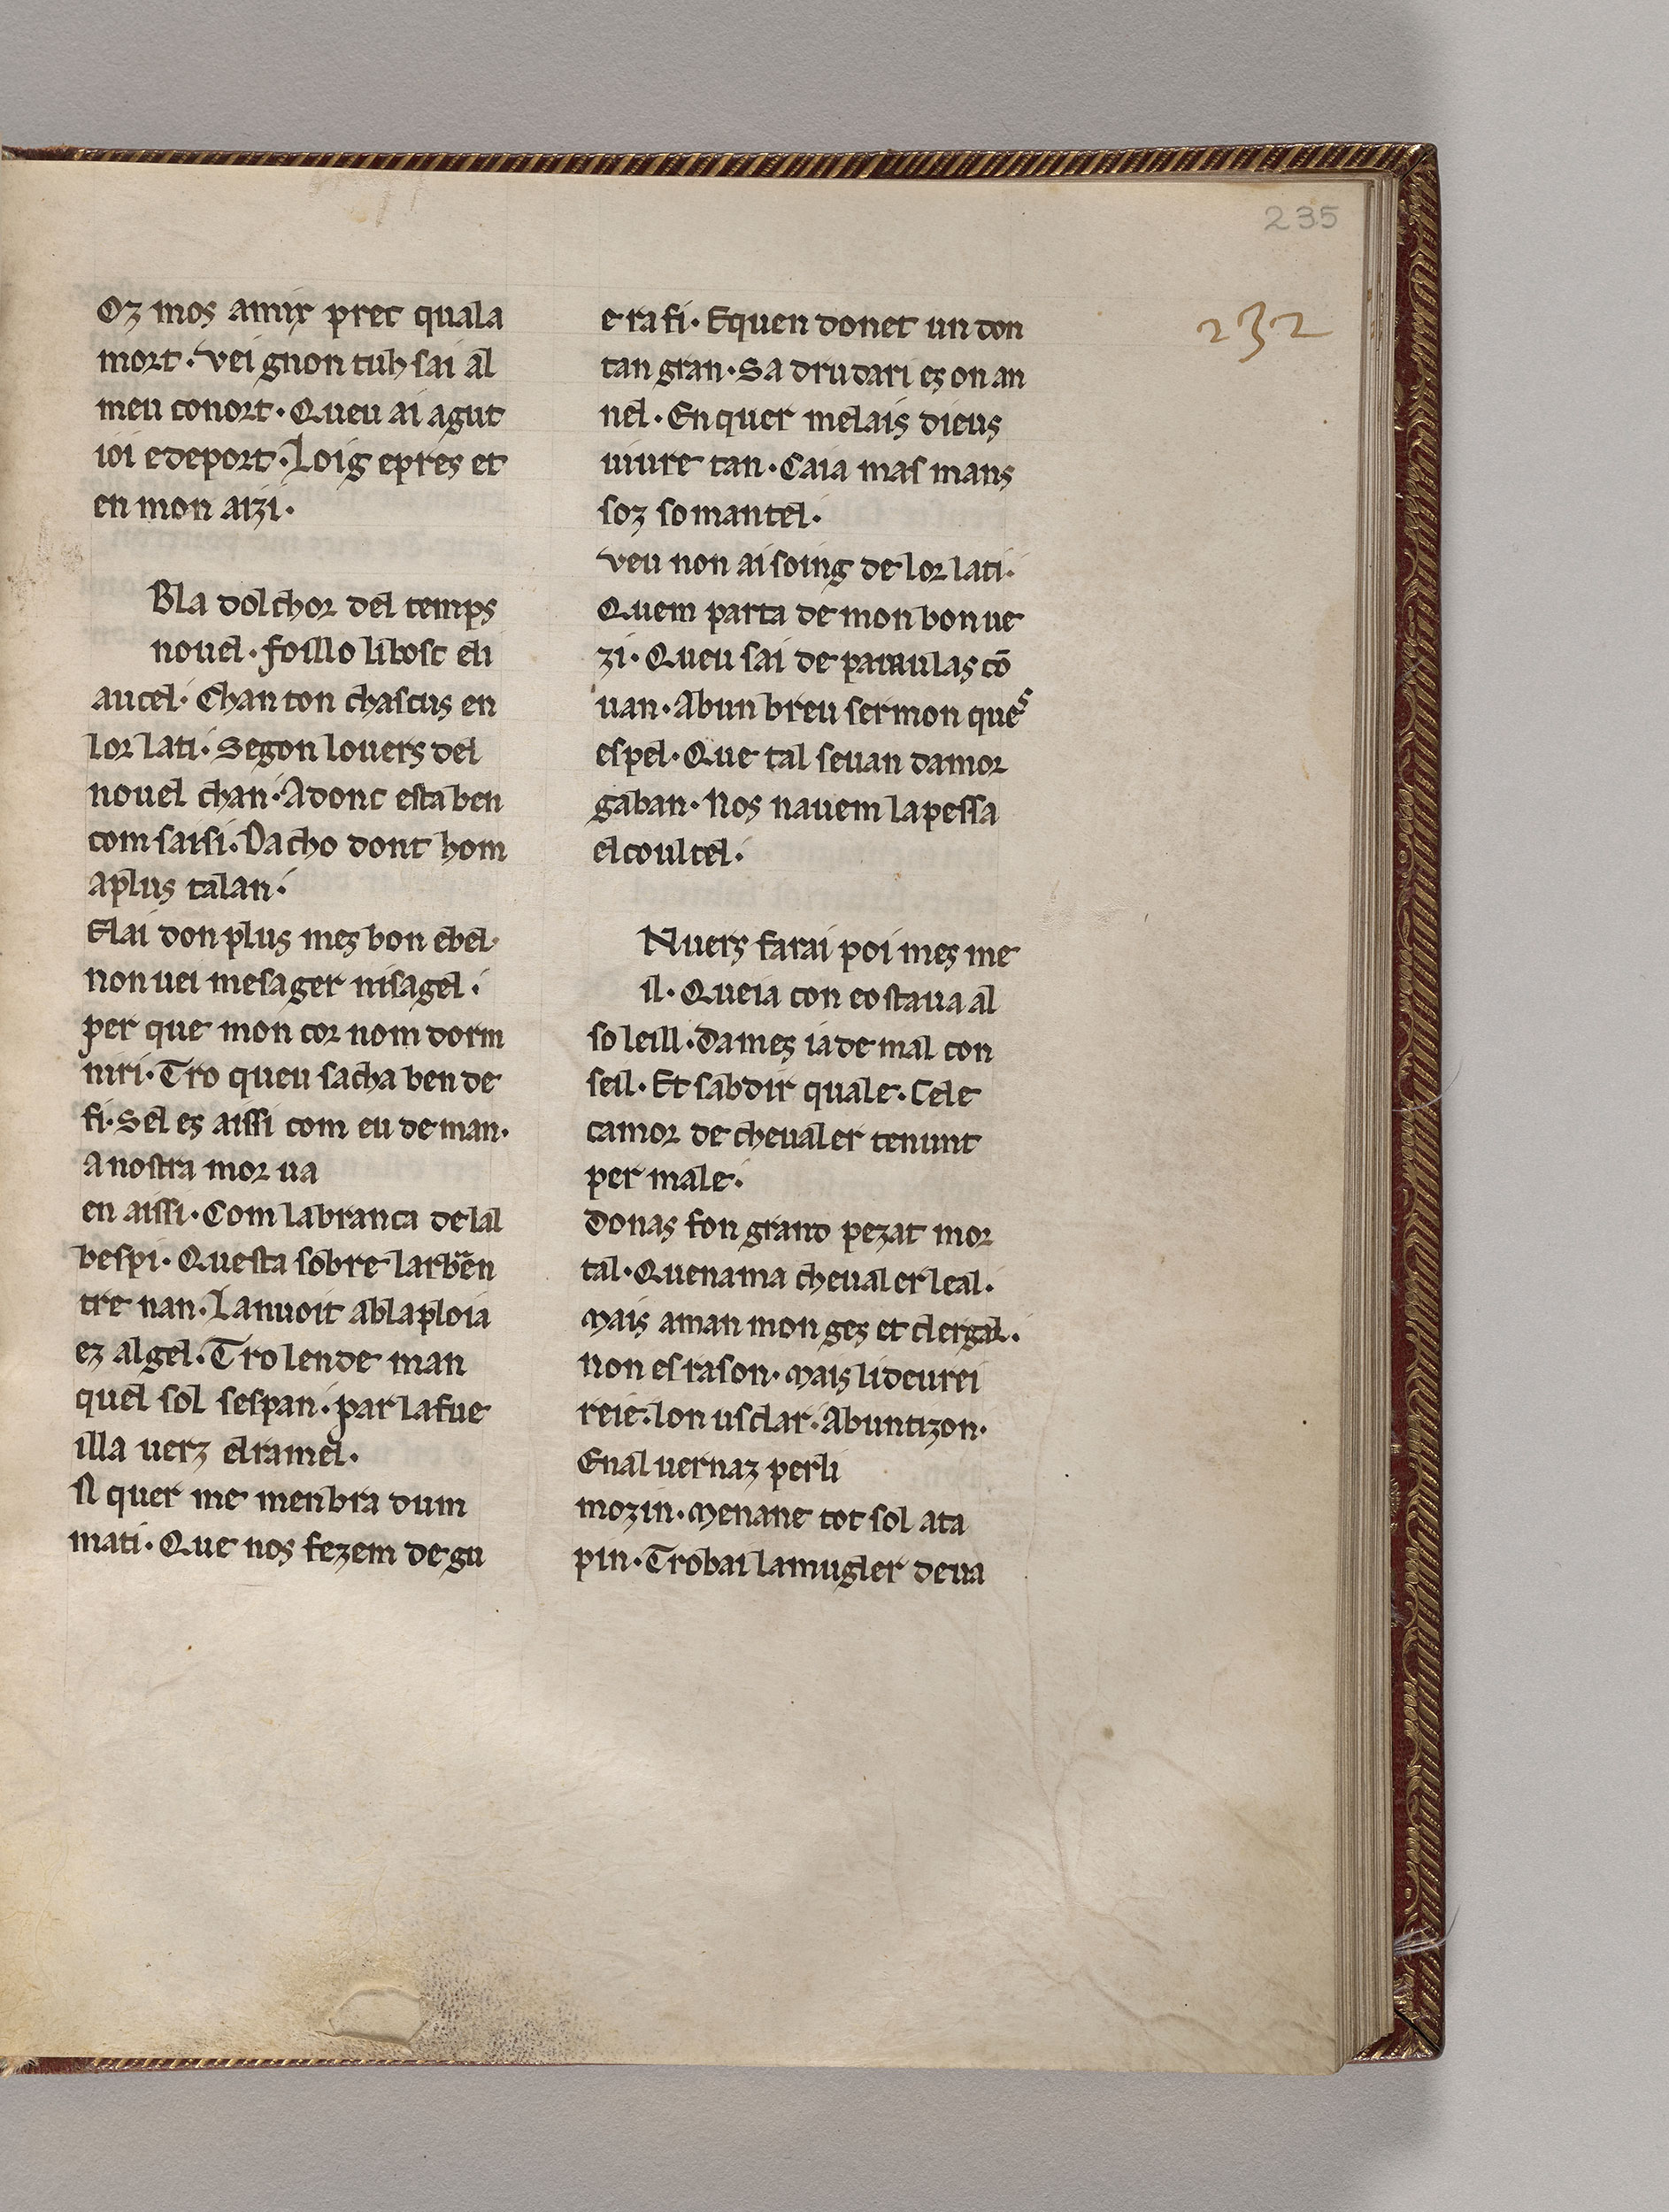 235
232
Oz mos amix prec quala
mort. vei gnon tuh sai al
meu conort. Queu ai agut
ioi edeport. Loig epres et
en mon aizi.
Bla dolchor del temps
nouel. foillo libosc eli
aucel. Chan ton chascus en
lor lati. Segon louers del
nouel chan. Adonc esta ben
com saisi. Dacho dont hom
aplus talan.
Elai don plus mes bon ebel.
non uei mesager nisagel.
per que mon cor nom dorm
niri. Tro queu sacha ben de
fi. Sel es aissi com eu deman.
a nostra mor ua
en aissi. Com labranca delal
bespi. Questa sobre larbr̄en
tre nan. Lanuoit ablaploia
ez algel. Tro lende man
quel sol sespan. par lafue
illa uerz elramel.
Al quer me menbra dum
mati. Que nos fezem degu
e ra fi. Equen donet un don
tan gran. Sa drudari es on an
nel. Enquer melais dieus
uiure tan. Caia mas mans
soz so mantel.
veu non ai soing de lor lati.
Quem parta de mon bon ue
zi. Queu sai de paraulas cō
uan. Abun breu sermon ques
espel. Que tal seuan damor
gaban. Nos nauem la pessa
el coultel.
Nuers farai poi mes me
il. Queia con eo staua al
soleill. Dames iade mal con
seil. Et sabdir quale. Cele
camor de cheualer tenunt
per male.
Donas fon grand pezat mor
tal. Quenama cheualer leal.
Mais aman mon ges et clergal.
non es rason. Mais lideurei
reie. lon usclar. Abuntizon.
Enal uernaz perli
mozin. Menane tot sol ata
pin. Trobai lamugler deua